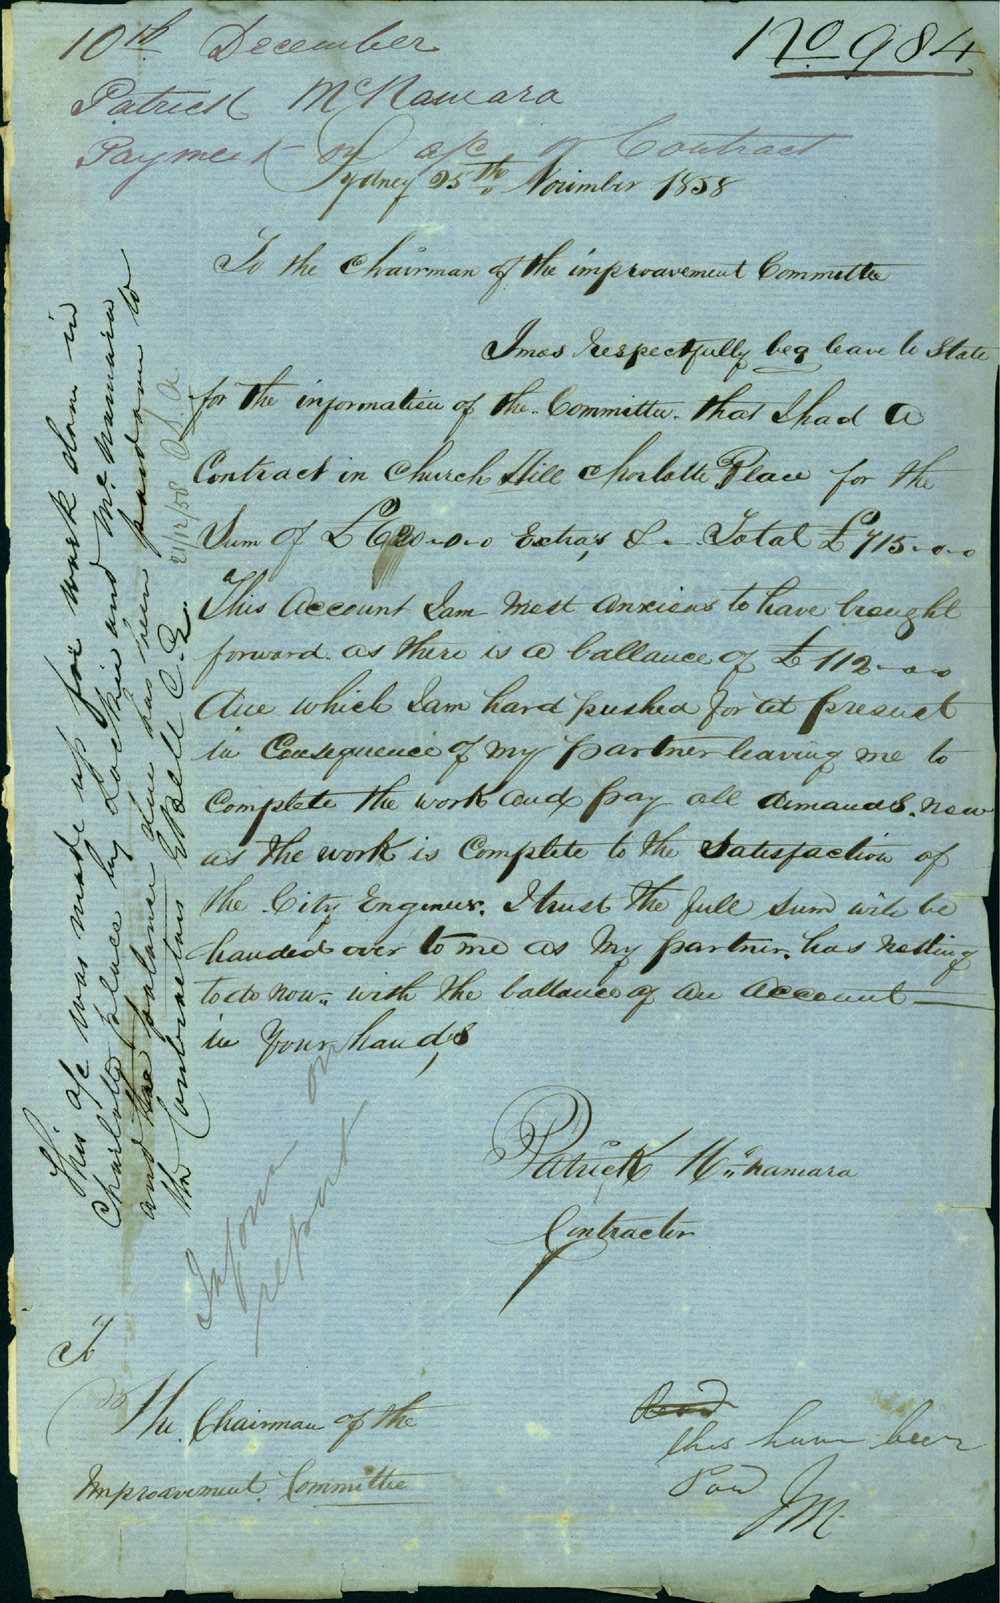 No 984
10th December
Patrick McNamara
Payment on a/c of Contract
Sydney 25th November 1858
To the Chairman of the improavement Committee
I mos Respectfully beg leave to State
for the information of the Committee that I had a
Contract in Church Hill Charlotte Place for the
Sum of £ Extra,s & Total £715-0-0
This Account I am Most anxious to have brought
forward as there is a ballance of £112-0-0
due which I am hard pushed for at present
in Consequence of my partner leaving me to
Complete the work and pay all demands. now
as the work is Complete to the Satisfaction of
the City Engineer. I trust the full sum will be
handed over to me as My partner has nothing
to do now with the ballance of an Account
in Your hand,s
Patrick McNamara
Contractor
To
The Chairman of the
Improavement Committee
This a/c was made up for work done in
Charlotte place by and McNamara
and the balance due has been paid to
the Contractors E Bell C.E. 21/12/58
Inform on
report
Read
this have been
Paid
JM